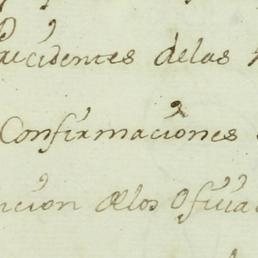 Precidentes delas
Confirmaciones
ncion delos Oficia